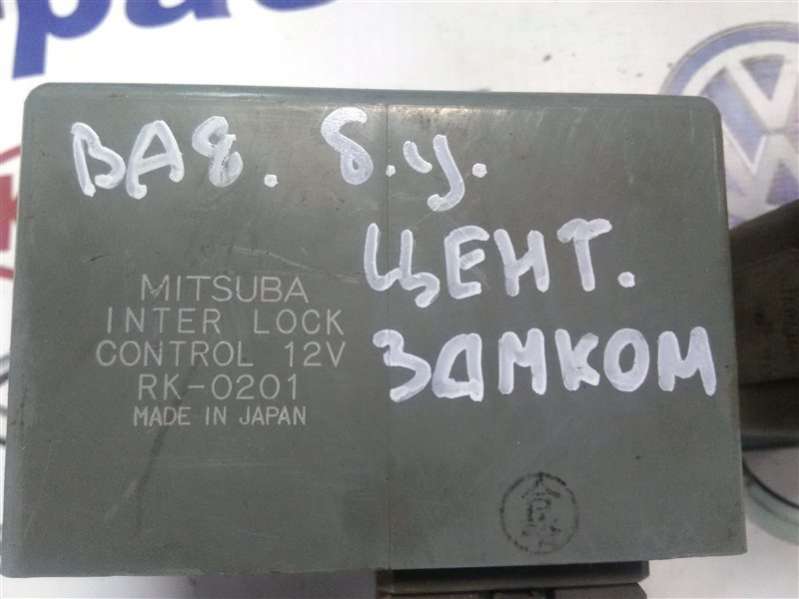 ВА8. б.у.
ЦЕНТ.
ЗАМКОМ
MITSUBA
INTER LOCK
CONTROL 12V
RK-0201
MADE IN JAPAN